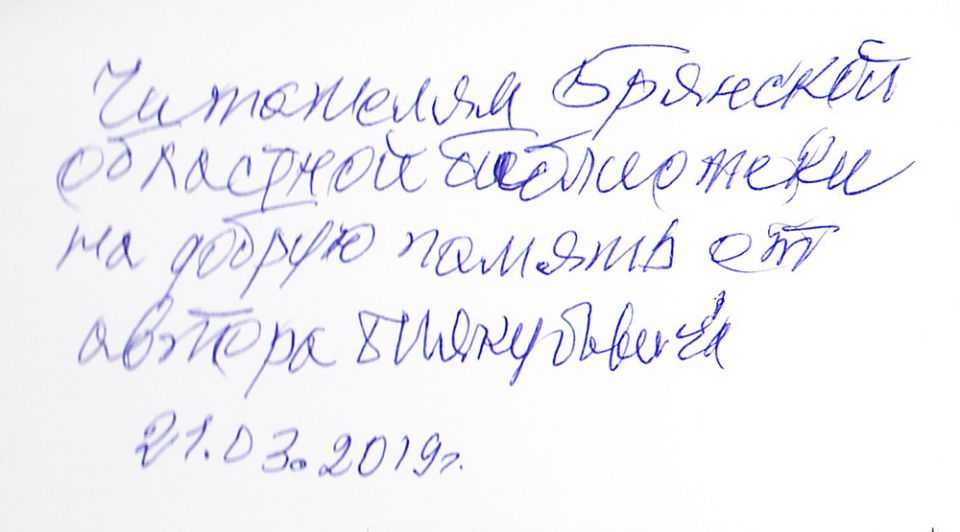 Читателям Брянской
областной библиотеки
на добрую память от
автора
21.03.2019г.